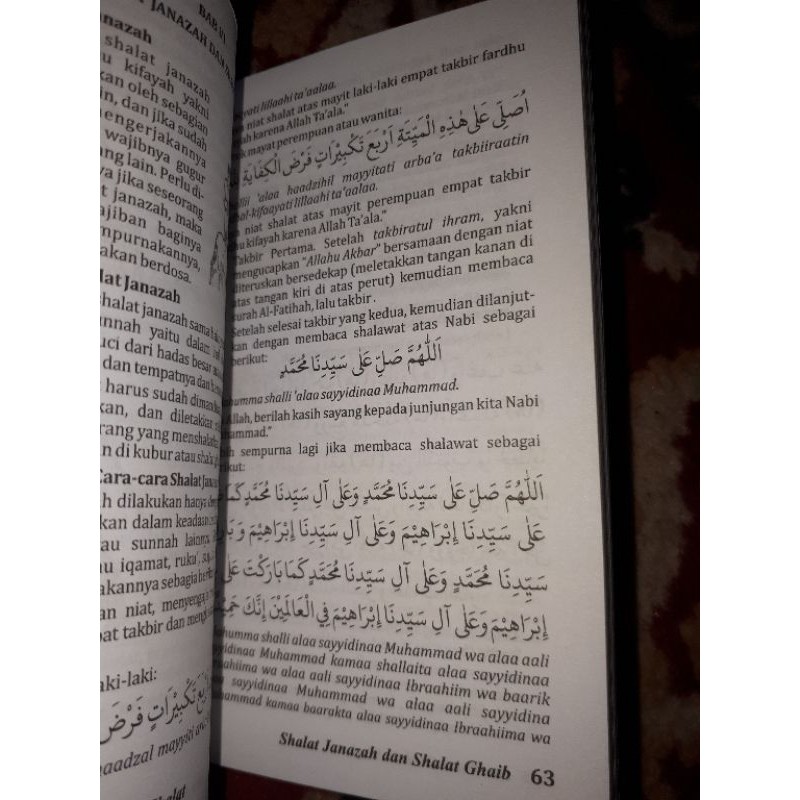 BAB III
JANAZAH DAN
anazah
shalat janazah
u kifayah yakni
kan oleh sebagian
in, dan jika sudah
engerjakannya
wajibnya gugur
ang lain. Perlu di-
ya jika seseorang
t janazah, maka
ajiban baginya
mpurnakannya,
akan berdosa.
lat Janazah
halat janazah sama
unnah yaitu dalam
uci dari hadas besar
dan tempatnya dan
harus sudah
kan, dan diletakkan
rang yang menshala
n di kubur atau
Cara-cara Shalat Jana
h dilakukan hanya
kan dalam keadaan
au sunnah lainnya
au iqamat, ruku',
akannya sebagia
an niat, menyenga
pat takbir dan
aki-laki:
بَعَ تَكْبِيْرَاتٍ فَرْضَ
haadzal mayyiti
Shalat
ayati lillaahi ta'aalaa.
niat shalat atas mayit laki-laki empat takbir fardhu
ah karena Allah Ta'ala."
k mayat perempuan atau wanita:
اُصَلِّى عَلَى هٰذِهِ الْمَيِّتَةِ اَرْبَعَ تَكْبِيْرَاتٍ فَرْضَ الْكِفَايَةِ
'alaa haadzihil mayyitati arba'a takbiiraatin
al-kifaayati lillaahi ta'aalaa.
niat shalat atas mayit perempuan empat takbir
u kifayah karena Allah Ta'ala."
Takbir Pertama. Setelah takbiratul ihram, yakni
mengucapkan "Allahu Akbar" bersamaan dengan niat
diteruskan bersedekap (meletakkan tangan kanan di
atas tangan kiri di atas perut) kemudian membaca
surah Al-Fatihah, lalu takbir.
Setelah selesai takbir yang kedua, kemudian dilanjut-
kan dengan membaca shalawat atas Nabi sebagai
berikut:
اَللّٰهُمَّ صَلِّ عَلٰى سَيِّدِنَا مُحَمَّدٍ
ahumma shalli 'alaa sayyidinaa Muhammad.
Allah, berilah kasih sayang kepada junjungan kita Nabi
ammad."
h sempurna lagi jika membaca shalawat sebagai
kut:
اَللّٰهُمَّ صَلِّ عَلٰى سَيِّدِنَا مُحَمَّدٍ وَعَلٰى آلِ سَيِّدِنَا مُحَمَّدٍ كَمَا
عَلٰى سَيِّدِنَا إِبْرَاهِيْمَ وَعَلٰى آلِ سَيِّدِنَا إِبْرَاهِيْمَ وَبَا
سَيِّدِنَا مُحَمَّدٍ وَعَلٰى آلِ سَيِّدِنَا مُحَمَّدٍ كَمَا بَارَكْتَ عَلٰى
إِبْرَاهِيْمَ وَعَلٰى آلِ سَيِّدِنَا إِبْرَاهِيْمَ فِي الْعَالَمِيْنَ إِنَّكَ حَمِيْدٌ
ahumma shalli alaa sayyidinaa Muhammad wa alaa aali
yidinaa Muhammad kamaa shallaita alaa sayyidinaa
raahiima wa alaa aali sayyidinaa Ibraahiim wa baarik
a sayyidinaa Muhammad wa alaa aali sayyidina
hammad kamaa baarakta alaa sayyidinaa Ibraahiima wa
Shalat Janazah dan Shalat Ghaib 63